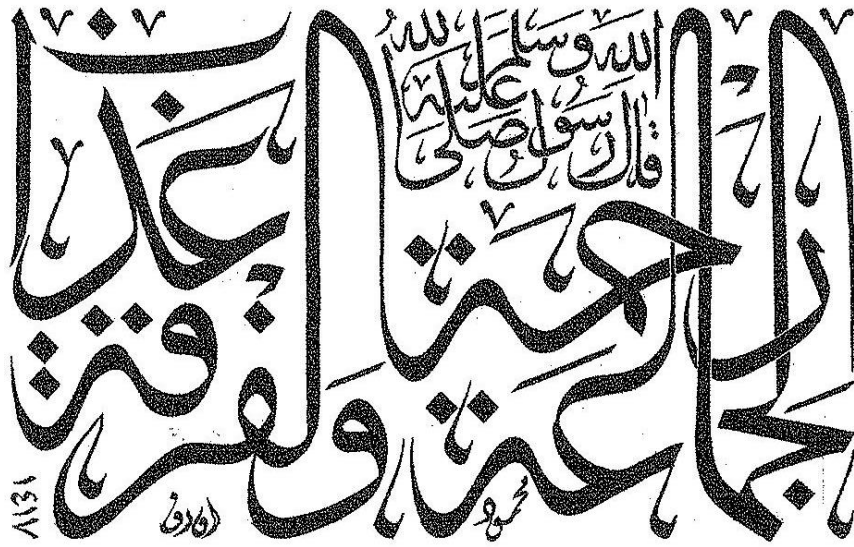 قال رسول الله صلى الله عليه وسلم
الجماعة رحمة
والفرقة عذاب
محمود